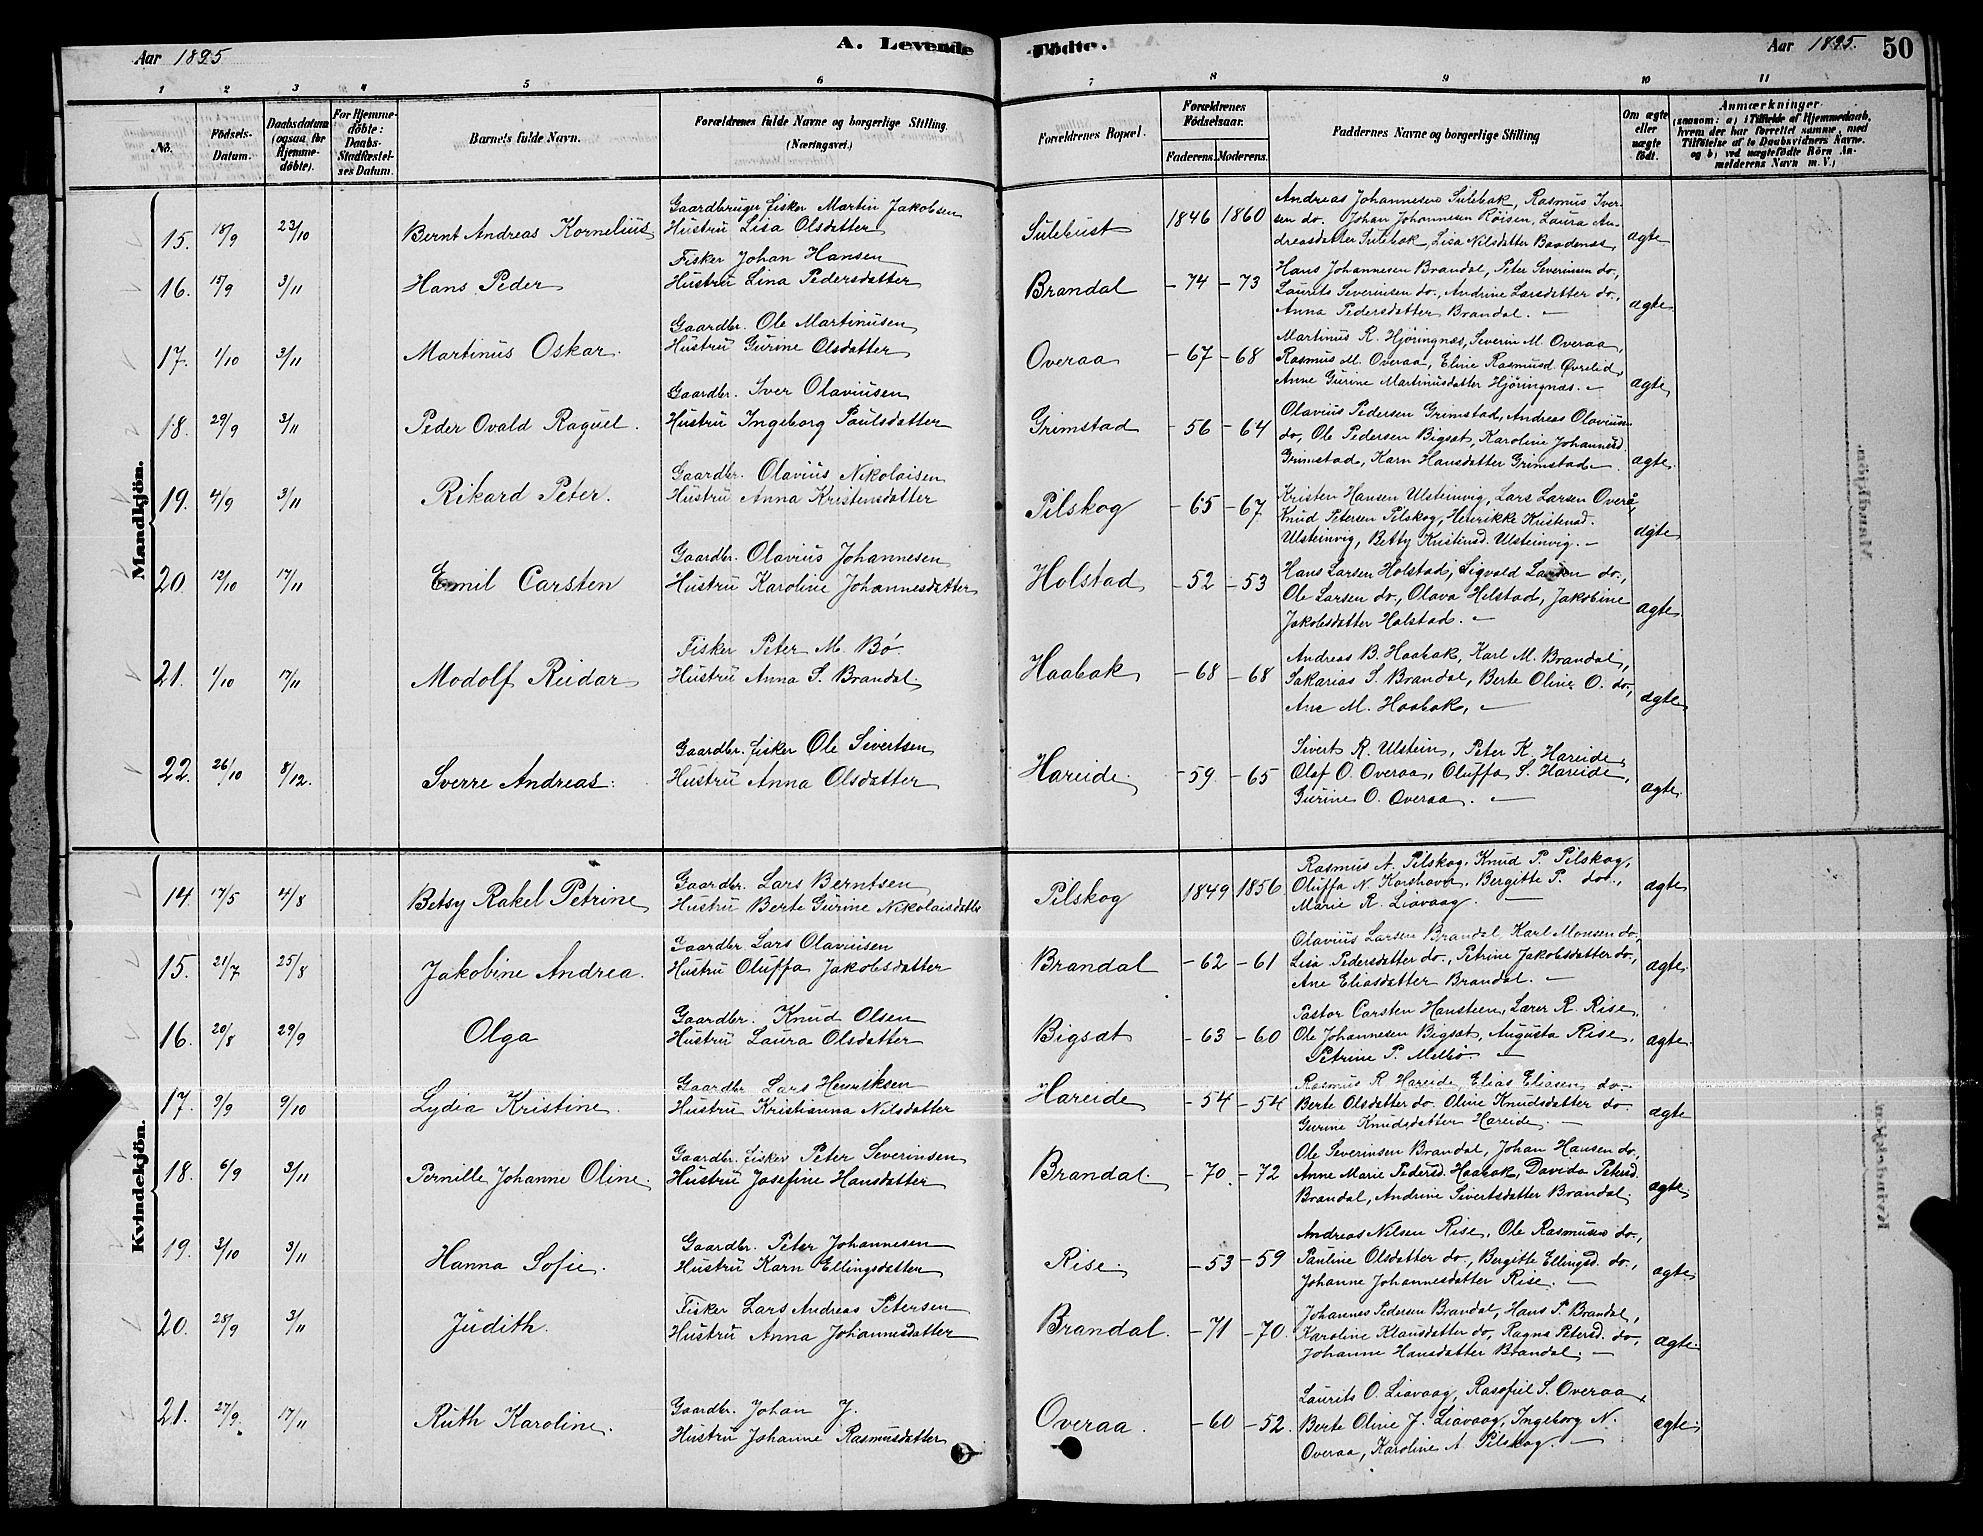 A. Levende
Födte.
Aar 1895
Aar 1895. 50
1 2 3 4 5 6
7 8 9 10 11
No. Födsels-Datum. Daabsdatum (ogsaa for Hjemmedöbte). For Hjemmedöbte: Daabs-Stadfæstelses Datum. Barnets fulde Navn. Forældrenes fulde Navne og borgerlige Stilling. (Næringsvei.)
Forældrenes Bopæl. Forældrenes Födselsaar. Faderens. Moderens. Faddernes Navne og borgerlige Stilling Om ægte eller uægte födt. Anmærkninger. (saasom: a) i Tilfælde af Hjemmedaab, hvem der har forrettet samme, med Tilföielse af to Daabsvidners Navne, og b) ved uægtefödte Börn Anmelderens Navn m. V.)
Mandkjön.
Gaardbruger Fisker Martin Jakobsen
15. 18/9 23/10 Bernt Andreas Kornelius Hustru Lisa Olsdatter
Sulebust 1846 1860 Andreas Johannesen Sulebak, Rasmus Iver-
sen do. Johan Johannesen Röisen, Laura An-
dreasdatter Sulebak, Lisa Nilsdatter Baadenes ægte
Fisker Johan Hansen
16. 15/9 3/11 Hans Peder Hustru Lina Pedersdatter
Brandal -74 -73 Hans Johannesen Brandal, Peter Severinsen do.,
Laurits Severinsen do., Andrine Larsdatter do.,
Anna Pedersdatter Brandal. ægte
Gaardbr. Ole Martinusen
17. 1/10 3/11 Martinus Oskar. Hustru Gurine Olsdatter
Overaa -67 -68 Martinus R. Hjöringnes, Severin M. Overaa,
Rasmus M. Overaa, Eline Rasmusd. Övrelid,
Anne Gurine Martinusdatter Hjöringnes. ægte
Gaardbr. Iver Olaviusen
18. 29/9 3/11 Peder Ovald Raguel. Hustru Ingeborg Paulsdatter
Grimstad -56 -64 Olavius Pedersen Grimstad, Andreas Olaviusen
do, Ole Pedersen Bigsat, Karoline Johannesd.
Grimstad, Karn Hansdatter Grimstad. ægte.
Gaardbr. Olavius Nikolaisen
19. 4/9 3/11 Rikard Peter. Hustru Anna Kristensdatter
Pilskog -65 -67 Kristen Hansen Ulsteinvig, Lars Larsen Overå
Knud Petersen Pilskog, Henrikke Kristensd.
Ulsteinvig, Betty Kristensd. Ulsteinvig. ægte
Gaardbr. Olavius Johannesen
20. 12/10 17/11 Emil Carsten Hustru Karoline Johannesdatter
Holstad -52 -53 Hans Larsen Holstad, Sigvald Larsen do.,
Ole Larsen do., Olava Helstad, Jakobine
Jakobsdatter Holstad. ægte
Fisker Peter M. Bö.
21. 1/10 17/11 Modolf Reidar Hustru Anna S. Brandal.
Haabak -68 -68 Andreas B. Haabak, Karl M. Brandal,
Sakarias S. Brandal, Berte Oline O. do.,
Ane M. Haabak, ægte
Gaardbr. Fisker Ole Sivertsen
22. 26/10 8/12. Sverre Andreas. Hustru Anna Olsdatter
Hareide. -59. -65 Sivert R. Ulstein, Peter K. Hareide,
Olaf O. Overaa, Oluffa S. Hareide,
Gurine O. Overaa. ægte.
Kvindekjön.
Gaardbr. Lars Berntsen
14. 17/5 4/8 Betsy Rakel Petrine Hustru Berte Gurine Nikolaisdatter
Pilskog 1849 1856 Rasmus A. Pilskog. Knud P. Pilskog,
Oluffa N. Korshavn, Bergitte P. do.,
Marie R. Liavaag. ægte
Gaardbr. Lars Olaviusen
15. 21/7 25/8 Jakobine Andrea. Hustru Oluffa Jakobsdatter
Brandal -62 -61 Olavius Larsen Brandal, Karl Monsen do,
Lisa Pedersdatter do., Petrine Jakobsdatter do.,
Ane Eliasdatter Brandal. ægte.
Gaardbr. Knud Olsen
16. 20/8 29/9 Olga Hustru Laura Olsdatter
Bigsat -63 -60 Pastor Carsten Hansteen, Lærer R. Rise,
Ole Johannesen Bigsat, Augusta Rise,
Petrine P. Melbö ægte.
Gaardbr. Lars Henriksen
17. 9/9 9/10 Lydia Kristine. Hustru Kristianna Nilsdatter
Hareide -54 -54 Rasmus R. Hareide, Elias Eliasen do.
Berte Olsdatter do. Oline Knudsdatter do.
Gurine Knudsdatter Hareide. ægte
Gaardbr. Fisker Peter Severinsen
18. 6/9 3/11 Pernille Johanne Oline. Hustru Josefine Hansdatter
Brandal. -70. -72 Ole Severinsen Brandal, Johan Hansen do.,
Anne Marie Pedersd. Haabak, Davida Petersd.
Brandal, Andrine Sivertsdatter Brandal. ægte.
Gaardbr. Peter Johannesen
19. 3/10 3/11 Hanna Sofie. Hustru Karn Ellingsdatter
Rise. -53 -59 Andreas Nilsen Rise, Ole Rasmusen do.,
Pauline Olsdatter do., Bergitte Ellingsd. do.,
Johanne Johannesdatter Rise. ægte
Fisker Lars Andreas Petersen
20. 28/9 3/11 Judith. Hustru Anna Johannesdatter
Brandal. -71 -70. Johannes Pedersen Brandal, Hans P. Brandal,
Karoline Klausdatter do, Ragna Petersd. do,
Johanne Hansdatter Brandal. ægte.
Gaardbr. Johan J.
21. 27/9. 17/11 Ruth Karoline. Hustru Johanne Rasmusdatter
Overaa. -60 -52. Laurits O. Liavaag, Rasofiel S. Overaa,
Berte Oline J. Liavaag, Ingeborg N.
Overaa, Karoline A. Pilskog. ægte.